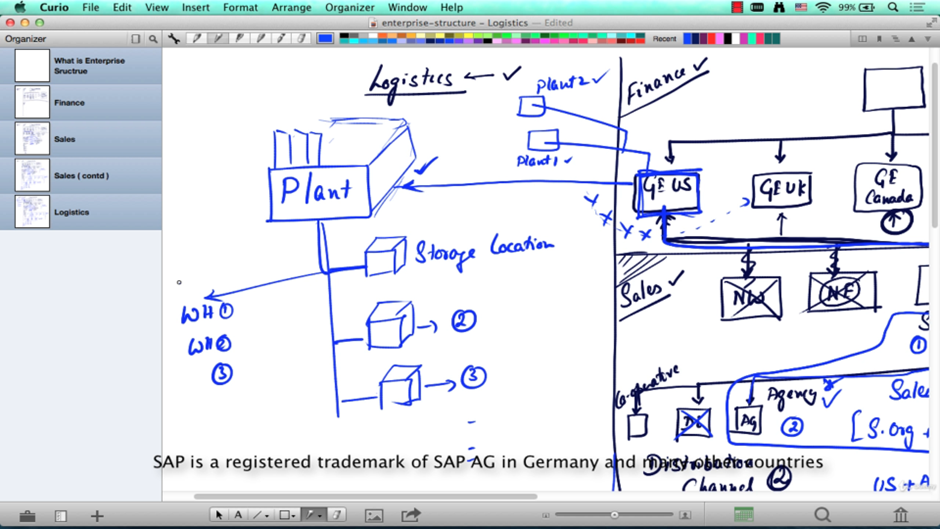 Curio File Edit View Insert Format Arrange Organizer Window Help 99%
enterprise-structure – Logistics — Edited
Organizer
Recent
What is Enterprise
Sructrue
Finance
Sales
Sales ( contd )
Logistics
Logistics
Plant2
Plant1
Plant
Storage Location
WH ①
WH ②
③
②
③
Finance
GE US
GE UK
GE
Canada
Sales
NW
NE
S
①
Co-operative
Agency
②
AG
Sales
[S.org +
Distribution
Channel ②
US + A
SAP is a registered trademark of SAP AG in Germany and many other countries